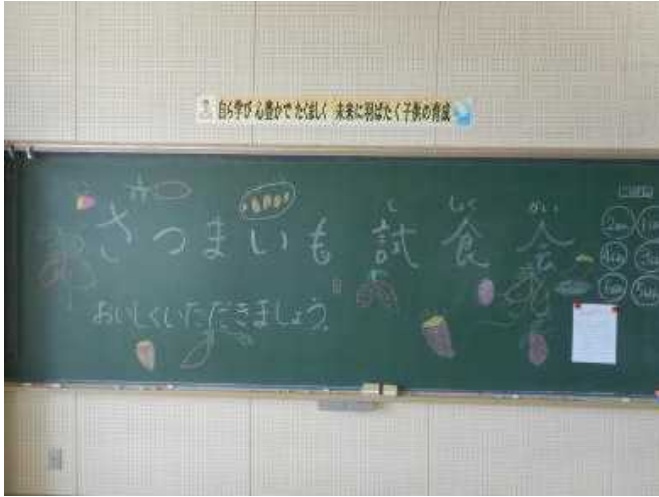 自ら学び 心豊かで たくましく 未来に羽ばたく子供の育成
さつまいも試食会
し しょく かい
おいしくいただきましょう。